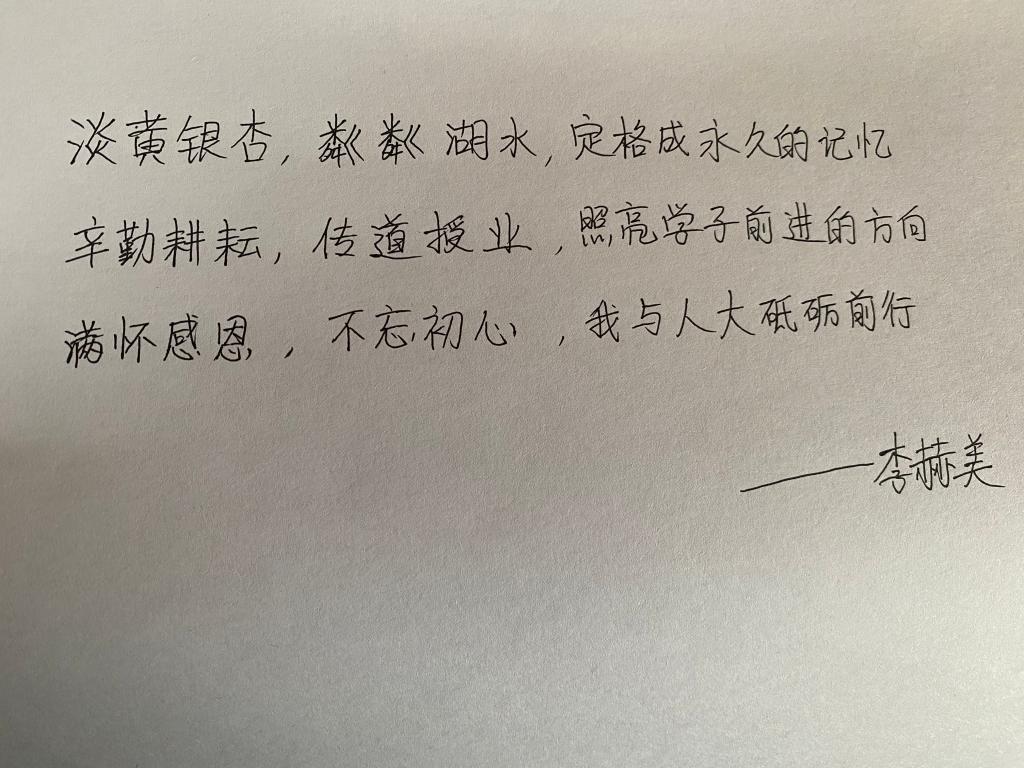 淡黄银杏，粼粼湖水，定格成永久的记忆
辛勤耕耘，传道授业，照亮学子前进的方向
满怀感恩，不忘初心，我与人大砥砺前行
——李赫美